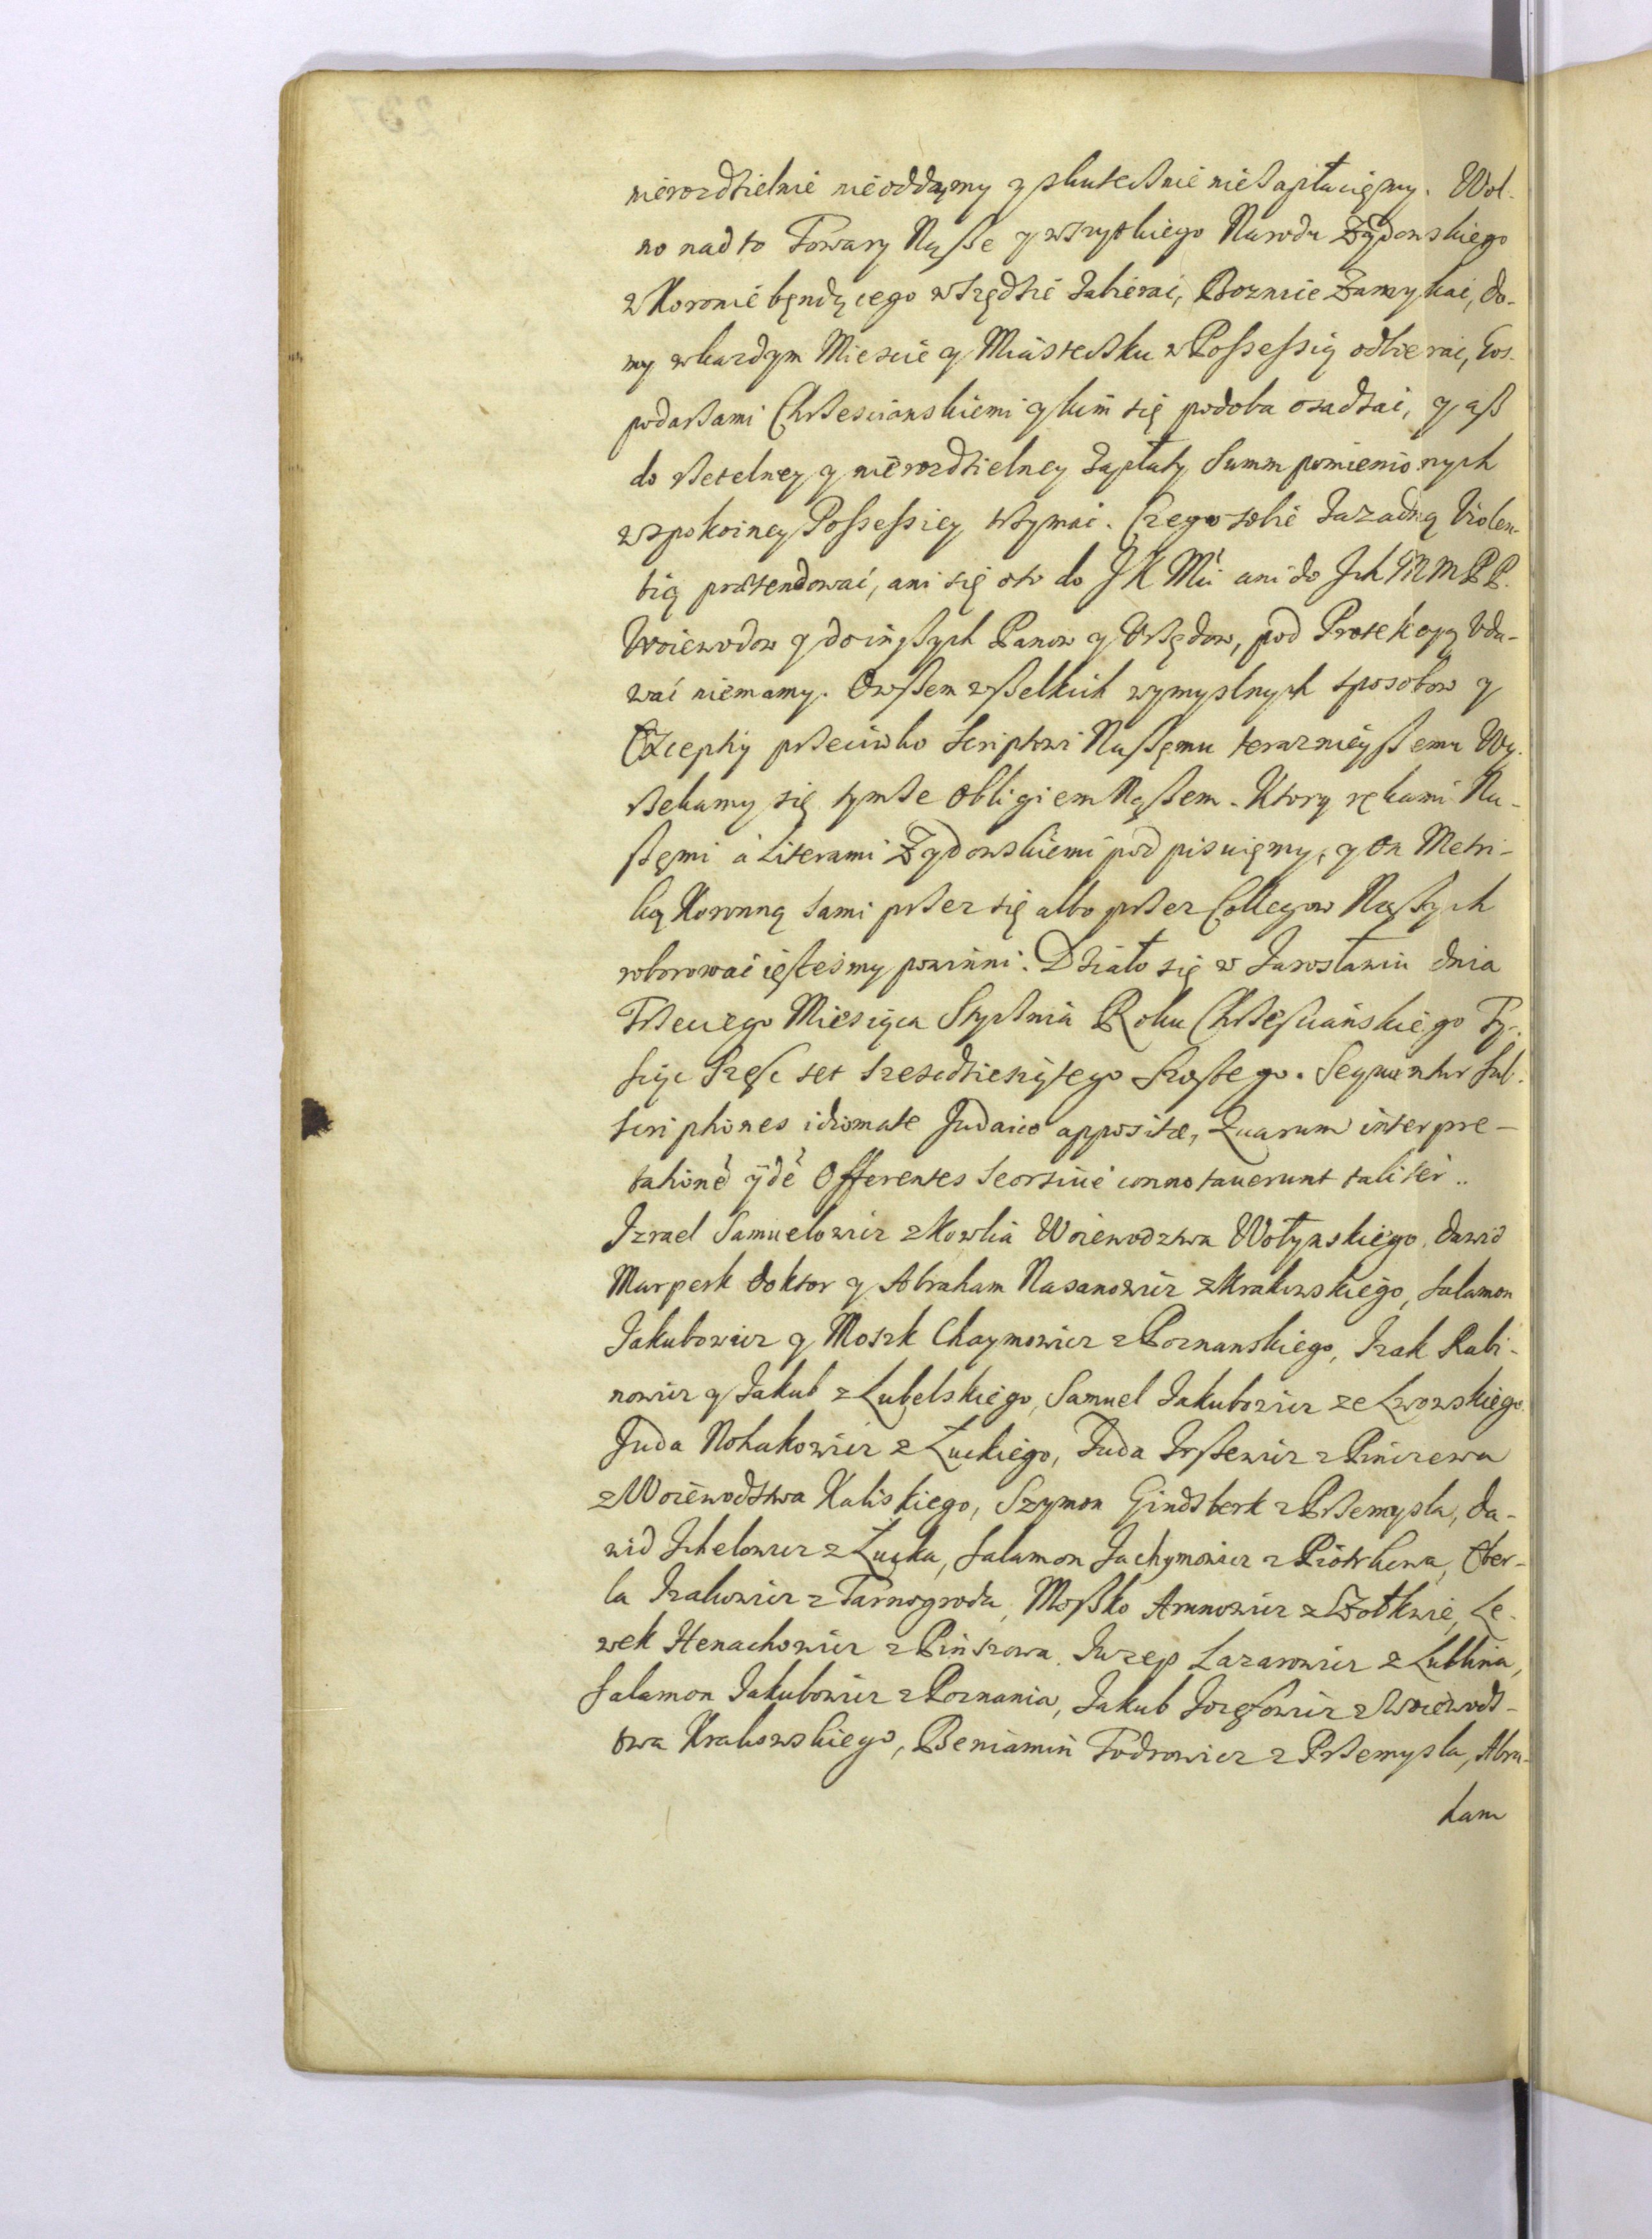 nierozdzielnie nieoddamy y skutecznie niezapłacięmy. Wol-
no nad to Towary Nąsze y wszytkiego Narodu Zydowskiego
w Koronie będącego wszędzie zabierac, Boznice Zamykac, do-
my w kazdym Miescie y Miasteczku w Possessią odbierac, Gos-
podarzami Chrzescianskiemi y kim się podoba osadzac, y asz
do rzetelney y nierozdzielney Zapłaty Summ pomienionych
w spokoiney Possessiey trzymac. Czego sobie za zadną Violen-
tią prætendowac, ani się oto do JK Mci ani do Ich MMPP.
Woiewodow y do inszych Panow y Urzędow, pod Protekcyą Uda-
wac niemamy. Owszem wszelkich wymyslnych sposobow y
Exceptiy przeciwko scriptowi Naszęmu terazniejszemu Wy-
rzekamy się tymże Obligiem Nąszem. Ktory rękami Na-
szęmi a Literami Zydowskiemi podpisuięmy, y On Metri-
ką Koronną sami przez się albo przez Collegow Naszych
roborowac iesteśmy powinni. Działo się w Jarosławiu dnia
Trzeciego Miesiąca Stycznia Roku Chrzesciańskiego Ty-
siąc szesc set szescdziesiątego szostego. Sequuntur sub-
scriptiones idiomate Judaico appositæ, Quarum interpre-
tationē ijdē Offerentes seorsiue connotauerunt taliter..
Izrael Samuelowicz z Kowlia Woiewodztwa Wołynskiego, Dawid
Murperk doktor y Abraham Nasanowicz z Krakowskiego, Salamon
Jakubowicz y Moszk Chaymowicz z Poznanskiego, Izak Rabi-
nowicz y Jakub z Lubelskiego, Samuel Jakubowicz ze Lwowskiego
Juda Nohakowicz z Łuckiego, Juda Irszewicz z Pinczewa
z Woiewodztwa Kaliskiego, Szymon Gindzberk z Przemysla, Da-
wid Ichelowicz z Łucka, Salamon Jachymowicz z Piotrkowa, Ober-
la Izakowicz z Tarnogrodu, Moszko Aronowicz z Zołkwie, Le-
wek Henachowicz z Pinszowa. Iuzep Lazarowicz z Lublina,
Salamon Jakubowicz z Poznania, Jakub Jozefowicz z Woiewodz-
twa Krakowskiego, Beniamin Todrowicz z Przemysla, Abra-
ham